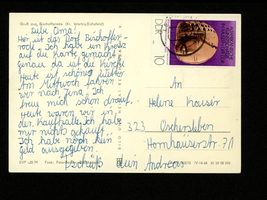 Gruß aus Bischofferode (Kr. Worbis/Eichsfeld)
Liebe Oma!
Hier ist das Dorf Bischoffe-
rode. Ich habe ein Kreuz
auf die Karte gemacht
genau da ist die Kirche
Heute ist schönes Wetter
Am Mittwoch fahren
wir nach Jena. Ich
freu mich schon drauf.
Heute waren wir in
der Kaufhalle. Ich habe
mir nichts gekauft.
Ich habe noch kein
Geld ausgegeben.
Tschüß dein Andreas
An
Helene Kaiser
323 Oschersleben
Hornhäuserstr. 71
DDR
10